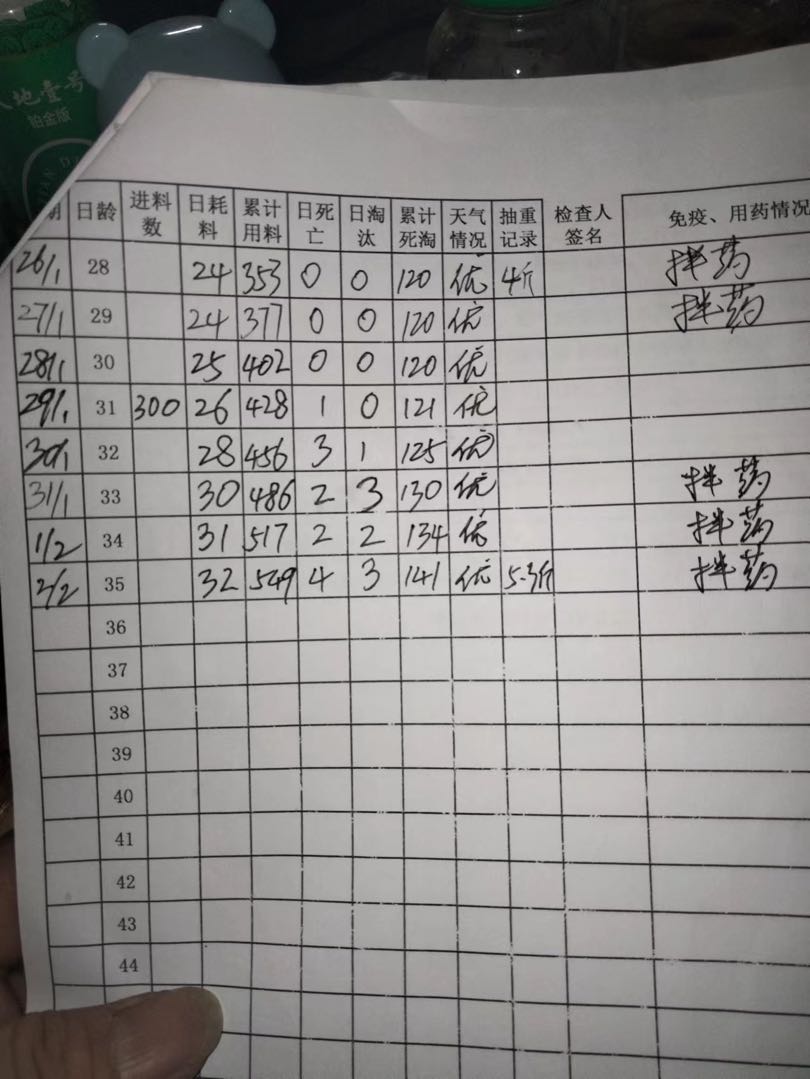 地壹号
铂金版
期 日龄 进料数 日耗料 累计用料 日死亡 日淘汰 累计死淘 天气情况 抽重记录 检查人签名 免疫、用药情况
26/1 28 24 353 0 0 120 优 4斤 拌药
27/1 29 24 377 0 0 120 优 拌药
28/1 30 25 402 0 0 120 优
29/1 31 300 26 428 1 0 121 优
30/1 32 28 456 3 1 125 优
31/1 33 30 486 2 3 130 优 拌药
1/2 34 31 517 2 2 134 优 拌药
2/2 35 32 549 4 3 141 优 5.3斤 拌药
36
37
38
39
40
41
42
43
44